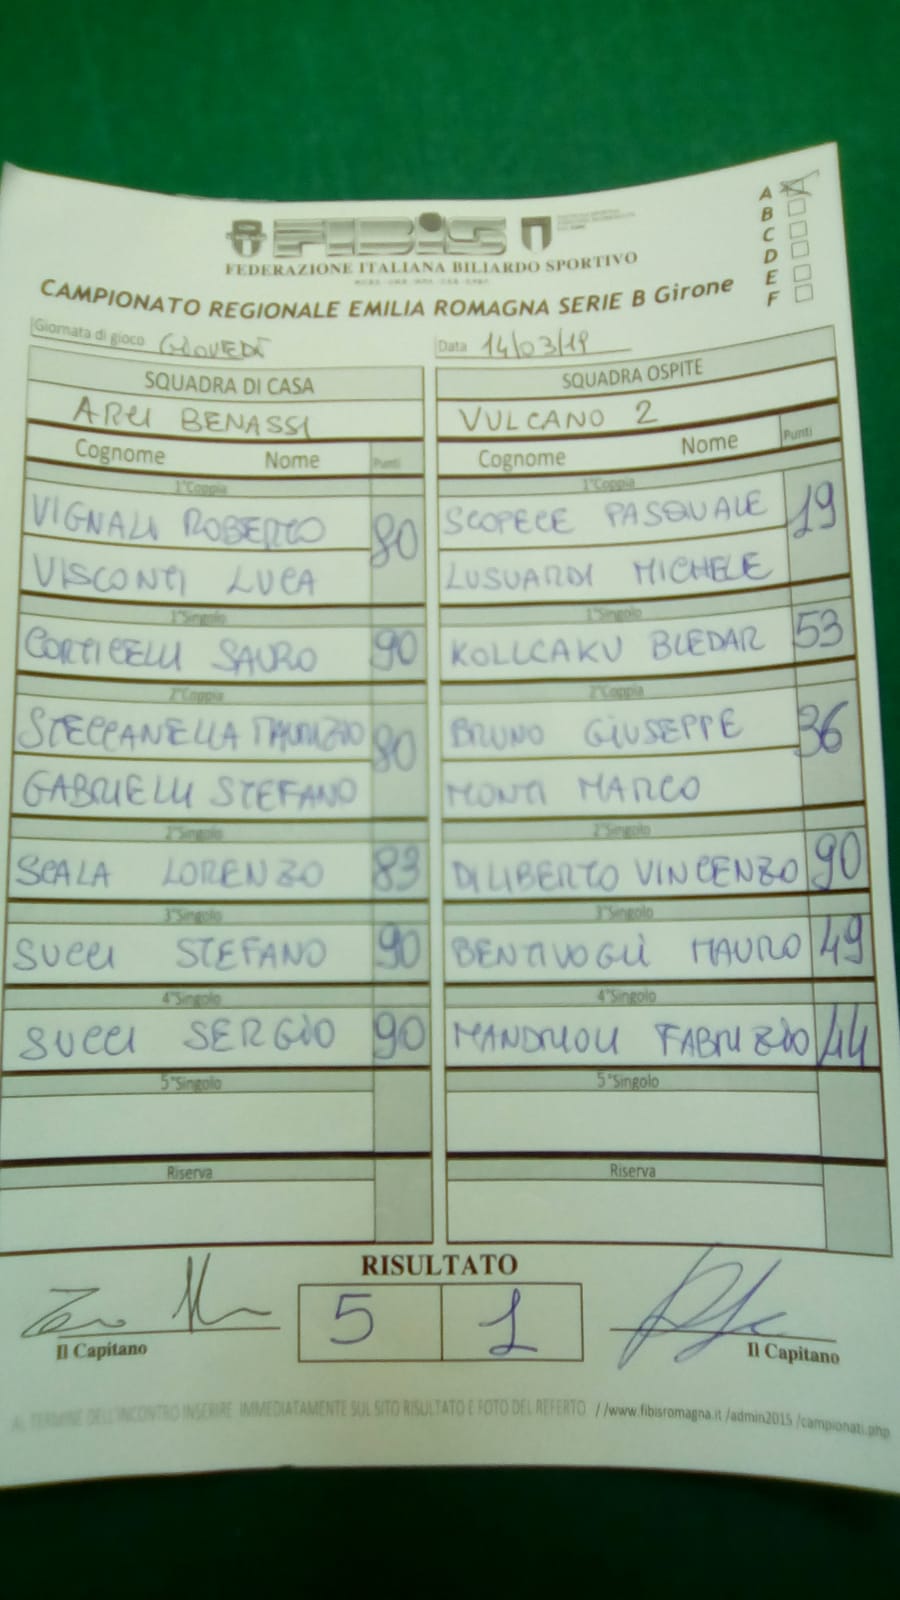 FIBiS
FEDERAZIONE ITALIANA BILIARDO SPORTIVO
CAMPIONATO REGIONALE EMILIA ROMAGNA SERIE B Girone
A
B
C
D
E
F
Giornata di gioco GIOVEDÌ Data 14/03/19
SQUADRA DI CASA SQUADRA OSPITE
ARCI BENASSI VULCANO 2
Cognome Nome Punti Cognome Nome Punti
1°Coppia 1°Coppia
VIGNALI ROBERTO 80 SCOPECE PASQUALE 19
VISCONTI LUCA LUSUARDI MICHELE
1°Singolo 1°Singolo
CORTICELLI SAURO 90 KOLLCAKU BLEDAR 53
2°Coppia 2°Coppia
STECCANELLA MAURIZIO 80 BRUNO GIUSEPPE 36
GABRIELLI STEFANO MONTI MARCO
2°Singolo 2°Singolo
SCALA LORENZO 83 DI LIBERTO VINCENZO 90
3°Singolo 3°Singolo
SUCCI STEFANO 90 BENTIVOGLI MAURO 49
4°Singolo 4°Singolo
SUCCI SERGIO 90 MANDRIOLI FABRIZIO 44
5°Singolo 5°Singolo
Riserva Riserva
RISULTATO
5 1
Il Capitano Il Capitano
AL TERMINE DELL'INCONTRO INSERIRE IMMEDIATAMENTE SUL SITO RISULTATO E FOTO DEL REFERTO //www.fibisromagna.it /admin2015 /campionati.php